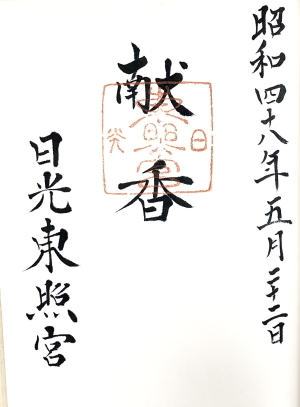 昭和四十八年五月二十二日
献香
日光東照宮
日光
東照宮